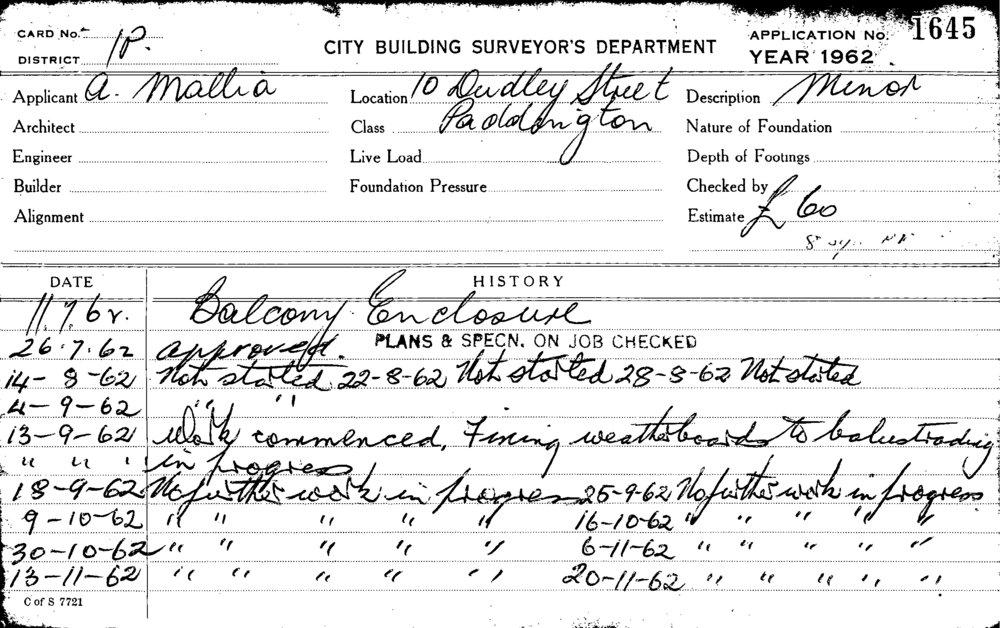 CARD No. 1P.
DISTRICT
CITY BUILDING SURVEYOR'S DEPARTMENT
APPLICATION No. 1645
YEAR 1962
Applicant A. Mallia
Location 10 Dudley Street
Description Minor
Architect
Class Paddington
Nature of Foundation
Engineer
Live Load
Depth of Footings
Builder
Foundation Pressure
Checked by
Alignment
Estimate £60
DATE HISTORY
11.7.62. Balcony Enclosure
26.7.62 approved. PLANS & SPECN. ON JOB CHECKED
14-8-62 Not started 22-8-62 Not started 28-8-62 Not started
4-9-62 " "
13-9-62 Work commenced, Fixing weatherboards to balustrading
" " " in progress
18-9-62 No further work in progress 25-9-62 No further work in progress
9-10-62 " " " " " 16-10-62 " " " " "
30-10-62 " " " " " 6-11-62 " " " " "
13-11-62 " " " " " 20-11-62 " " " " "
C of S 7721